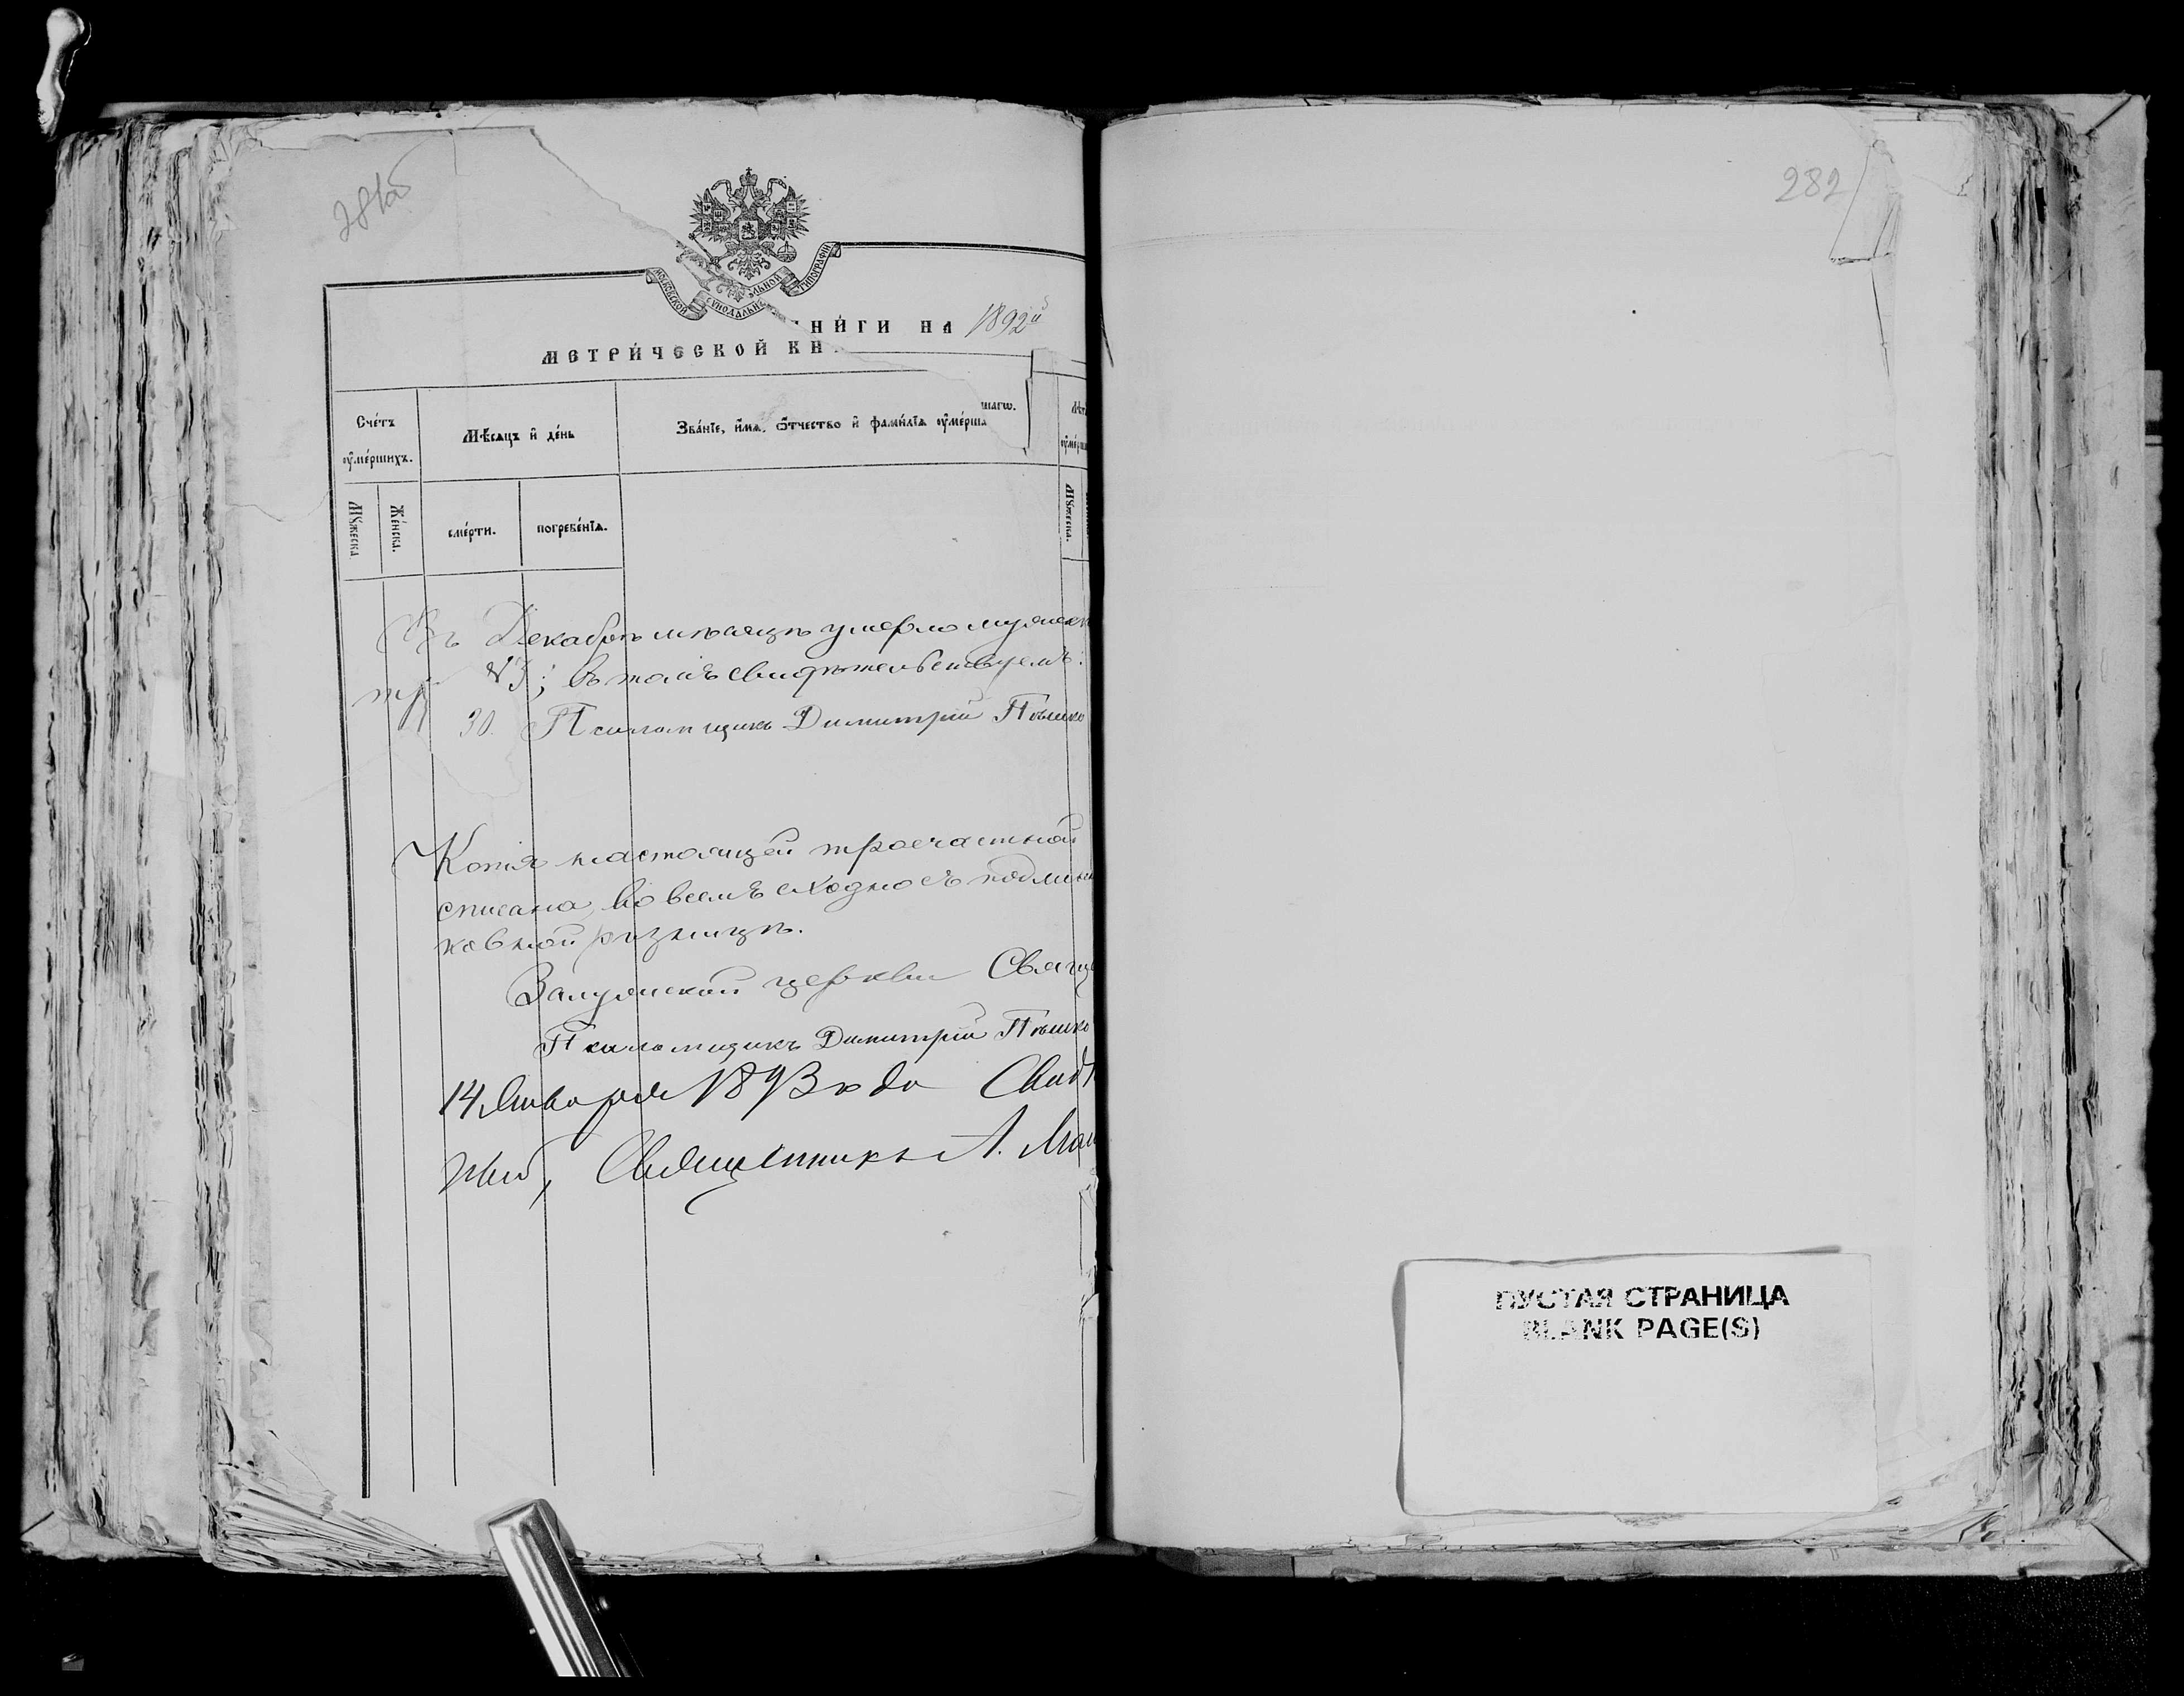 281об
282
МОСКОВСКОЙ СѴНОДАЛЬНОЙ ТИПОГРАФІИ
МЕТРИ́ЧЕСКОЙ КНИ́ГИ НА 1892й
Сче́тъ ᲂу҆ме́ршихъ.
Мѣ́сѧцъ и҆ де́нь
Зва́нїе, и҆́мѧ, ѻ҆́тчество и҆ фами́лїѧ ᲂу҆ме́ршагѡ.
Лѣт
ᲂу҆ме́рш
Мꙋ́жеска
Же́нска.
сме́рти.
погребе́нїѧ.
Мꙋ́жеска.
Въ Декабрѣ мѣсяцѣ умерло мужеск
въ томъ свидѣтельствуемъ:
30. Псаломщикъ Димитрій Пѣшко
Копія настоящей троечастной
списана, во всемъ сходно съ подлин
ковной ризницѣ.
Залужской церкви Свяще
Псаломщикъ Димитрій Пѣшко
14 Января 1893 года Свидѣ
Священникъ А.
ПУСТАЯ СТРАНИЦА
BLANK PAGE(S)